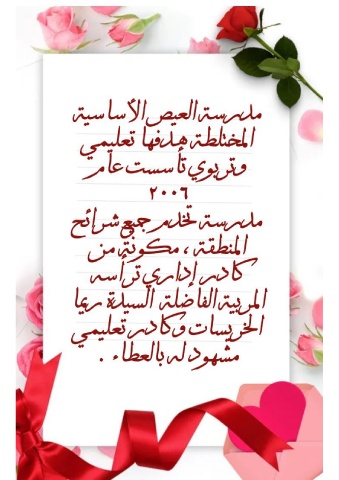 مدرسة العيص الأساسية
المختلطة هدفها تعليمي
وتربوي تأسست عام
٢٠٠٦
مدرسة تخدم جميع شرائح
المنطقة ، مكونة من
كادر إداري ترأسه
المربية الفاضلة السيدة ريما
الخريسات وكادر تعليمي
مشهود له بالعطاء .